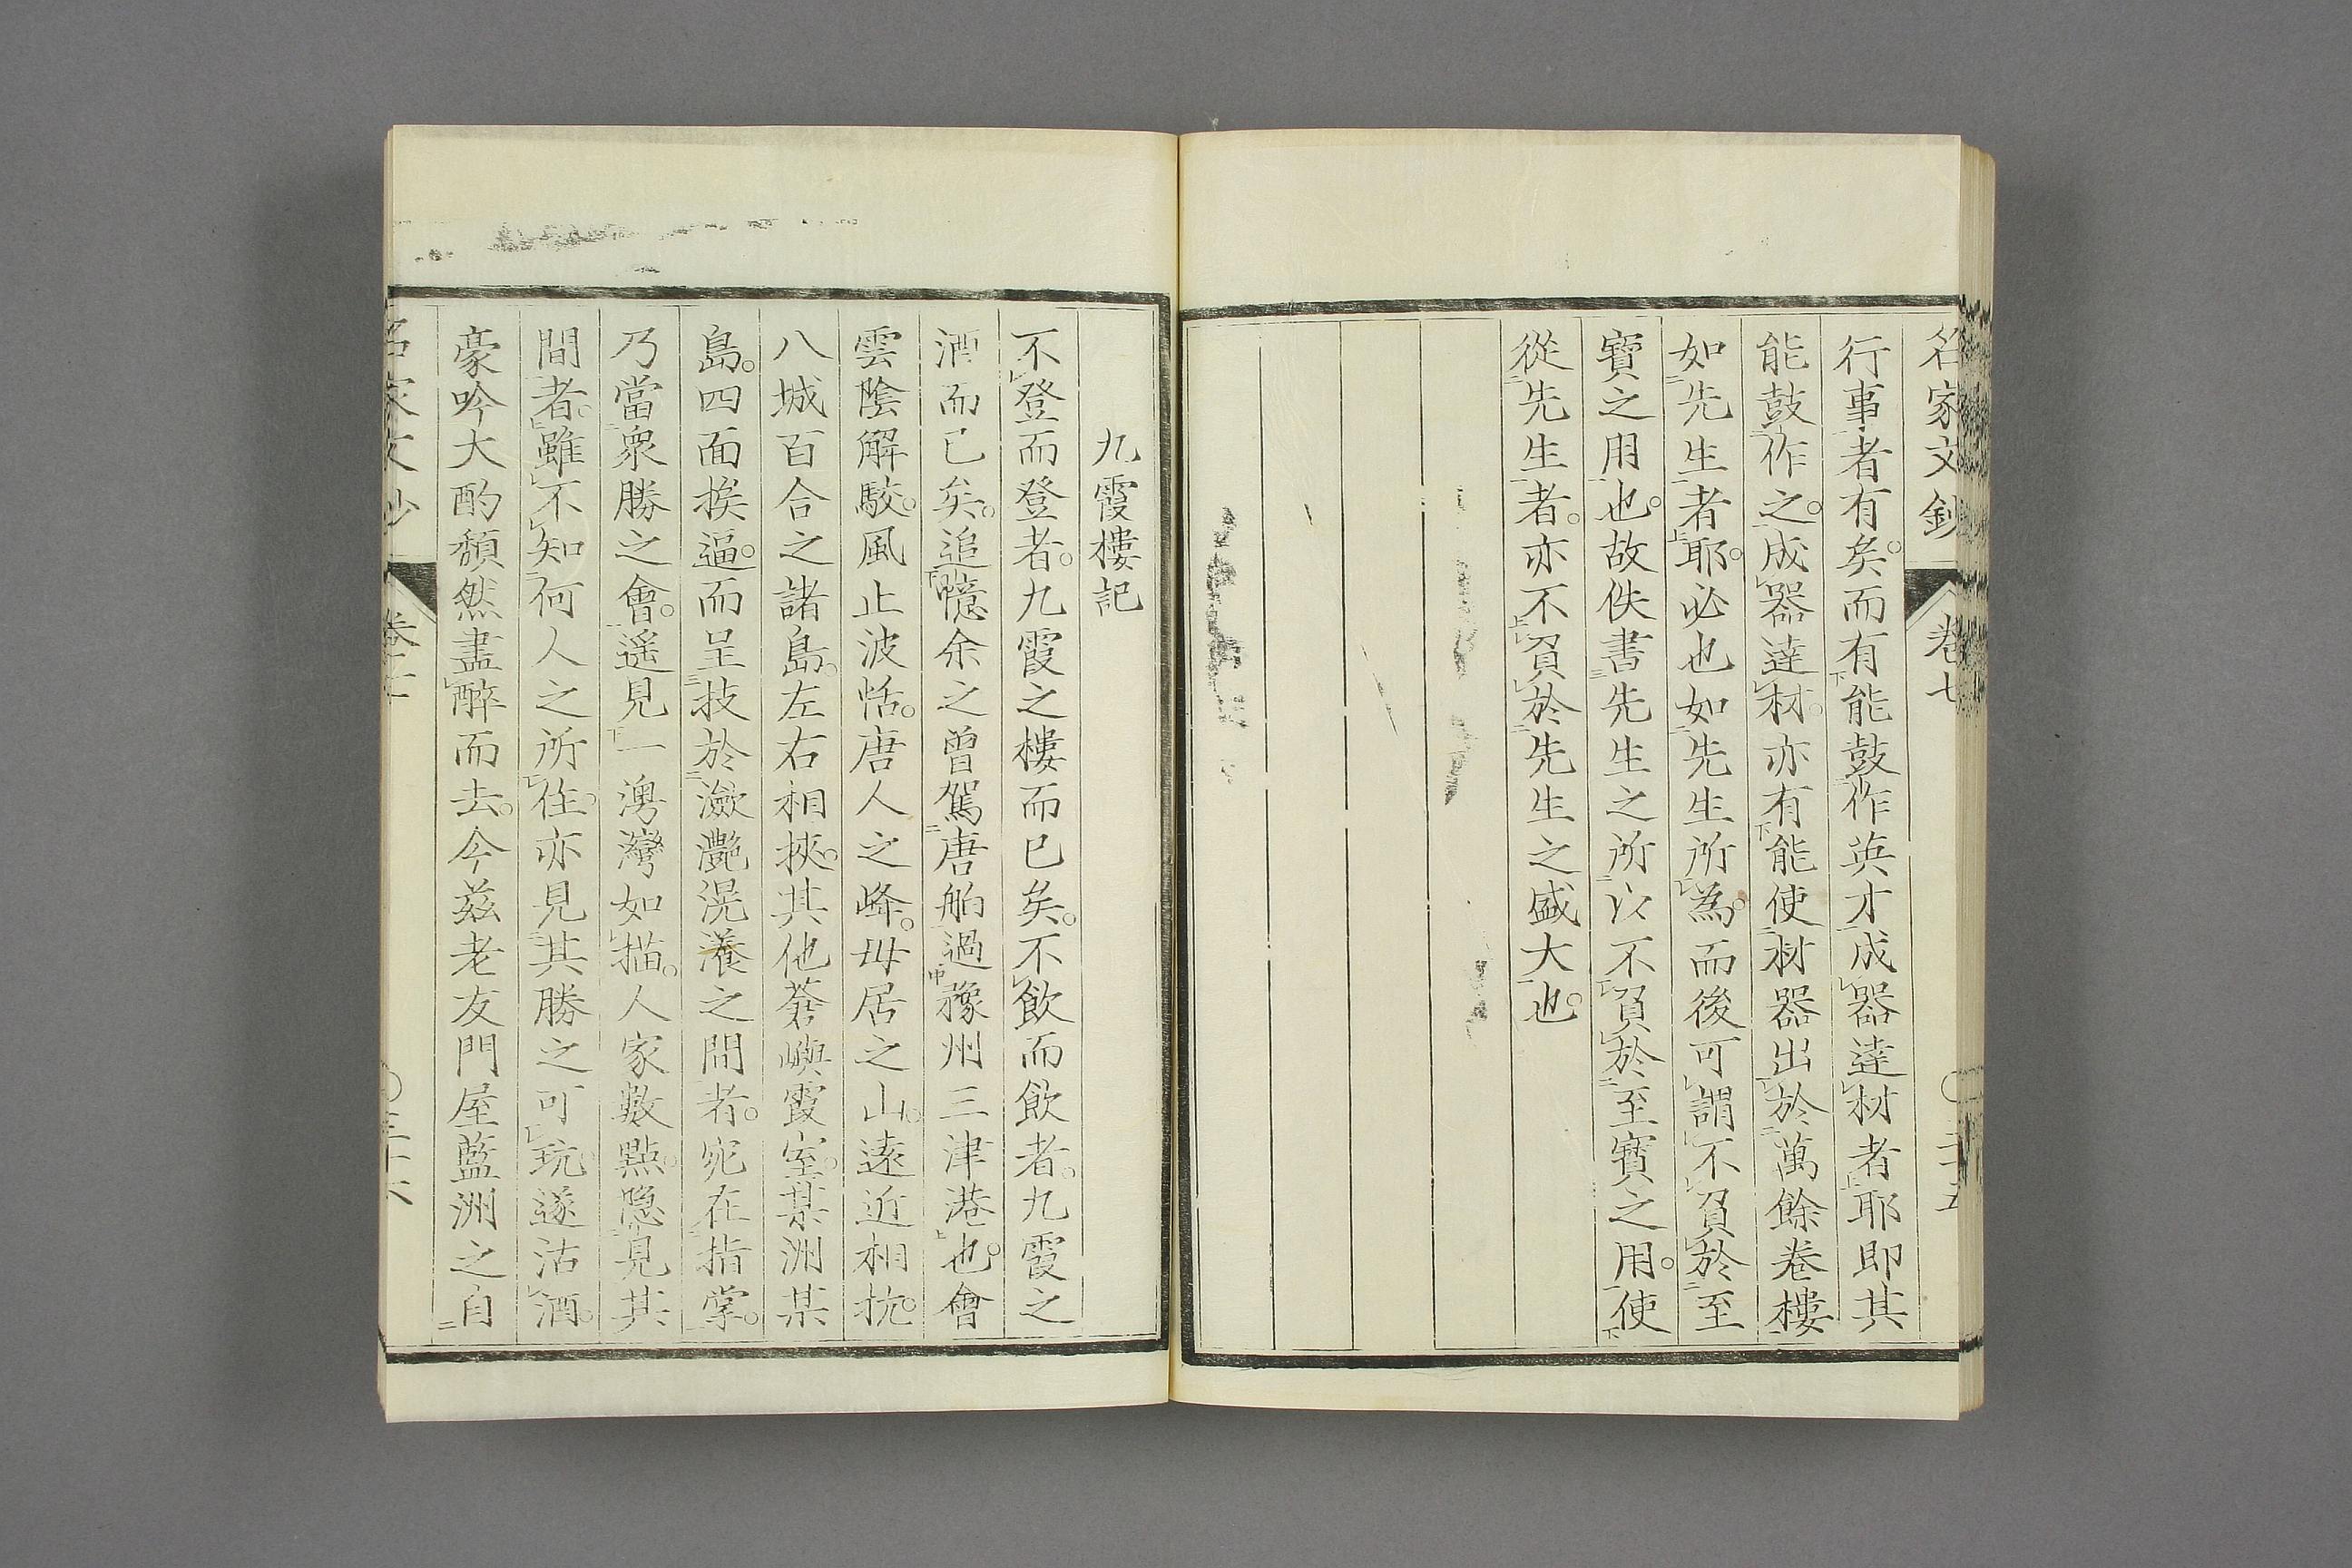 名家文鈔 卷七
行事者有矣。而有能鼓作英才成器達材者耶即其
能鼓作之。成器達材。亦有能使材器出於萬餘卷樓
如先生者耶。必也如先生所為。而後可謂不負於至
寶之用也。故佚書先生之所以不負於至寶之用。使
從先生者。亦不負於先生之盛大也。
九霞樓記
不登而登者。九霞之樓而已矣。不飲而飲者。九霞之
酒而已矣。追憶余之曾駕唐舶過豫州三津港也。會
雲陰解駮。風止波恬。唐人之峰。毋居之山。遠近相抗。
八城百合之諸島。左右相挾。其他蒼嶼霞室。某洲某
島。四面挨逼。而呈技於瀲灩滉瀁之間者。宛在指掌。
乃當衆勝之會。遥見一灣灣如描。人家數點。隐見其
間者。雖不知何人之所住。亦見其勝之可玩。遂沽酒。
豪吟大酌頹然盡醉而去。今兹老友門屋藍洲之自